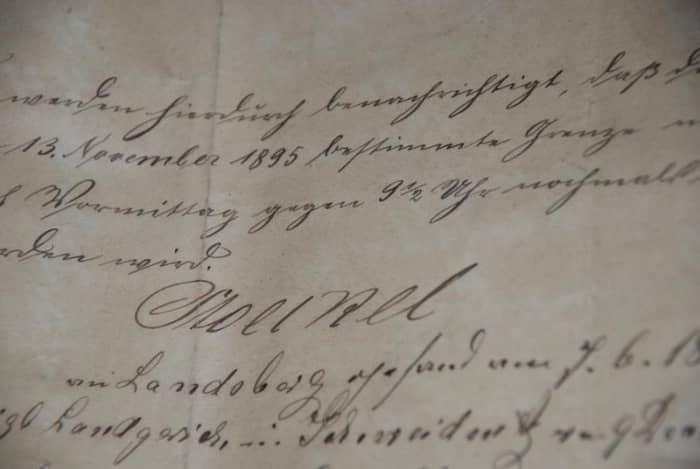 werden hierdurch benachrichtigt, daß
13. November 1895 bestimmte Grenze
Vormittag gegen 9½ Uhr nochmals
rden wird.
in Landsberg gesand am 7. 6. 18
Landgerich, in Schweidnitz